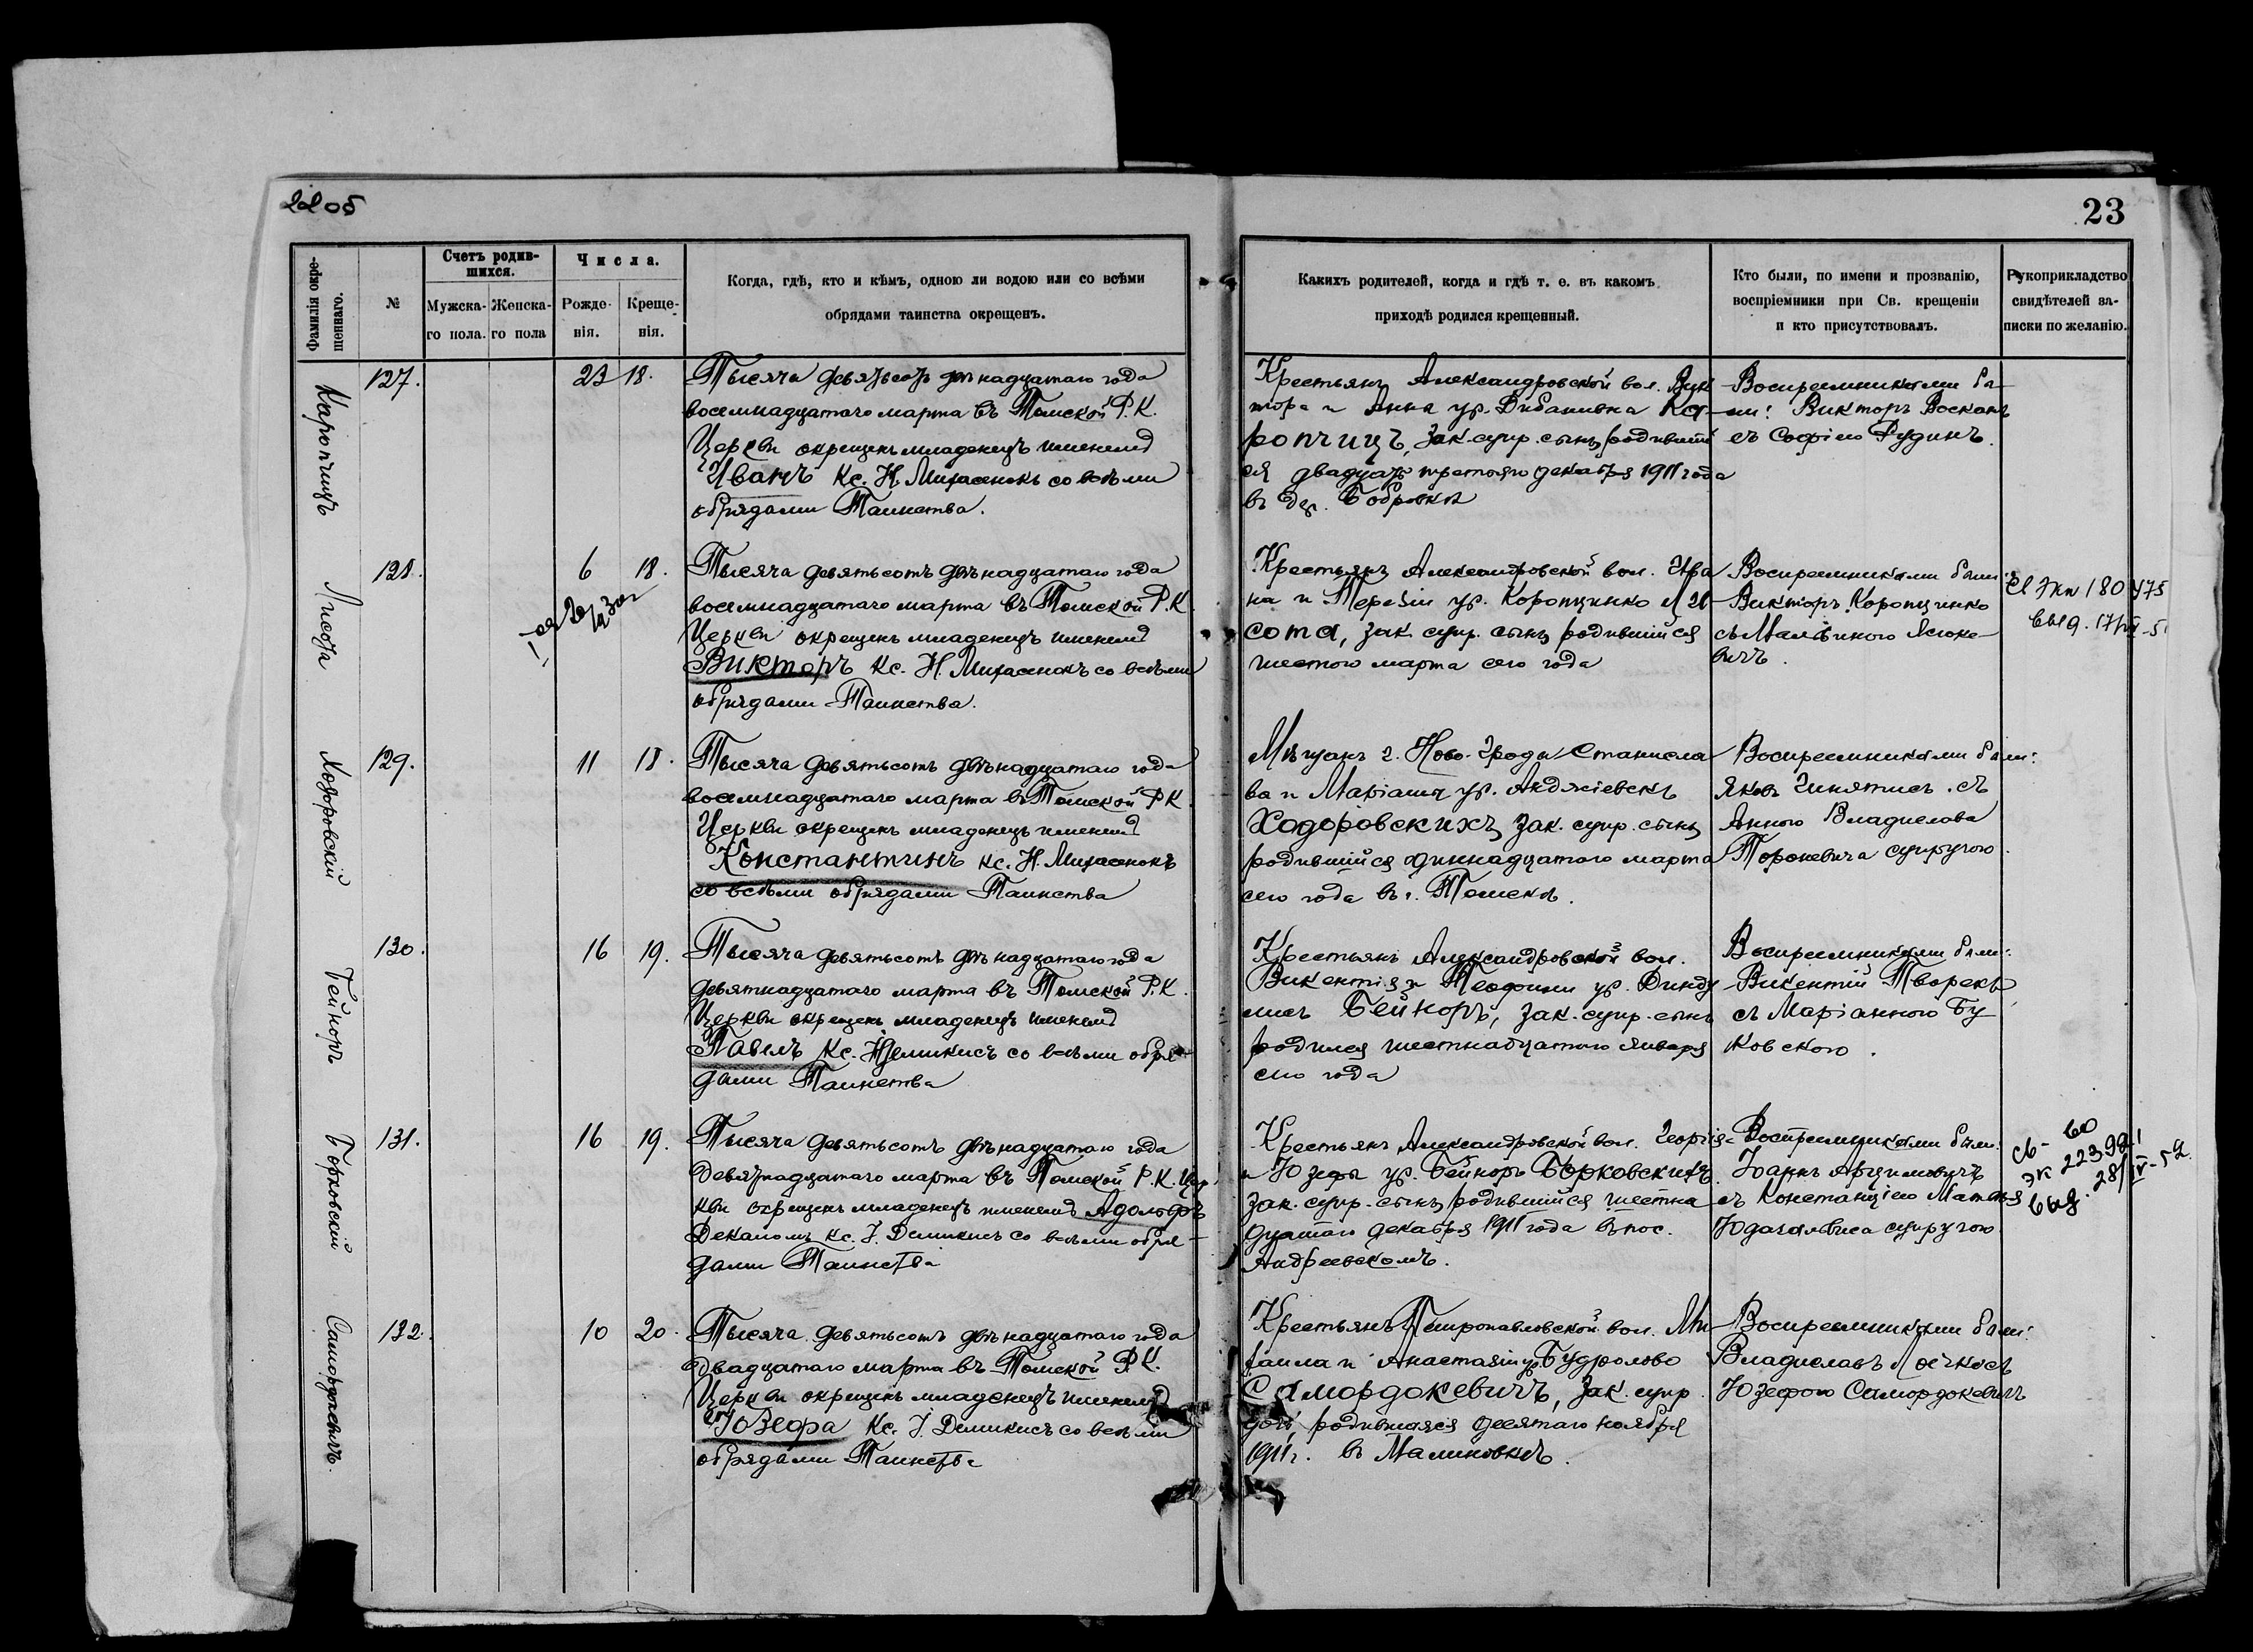 22 об
23
Фамилія окре-
щеннаго.
№
Счетъ родив-
шихся.
Мужска-
го пола.
Женска-
го пола
Числа.
Рожде-
нія.
Креще-
нія.
Когда, гдѣ, кто и кѣмъ, одною ли водою или со всѣми
обрядами таинства окрещенъ.
Какихъ родителей, когда и гдѣ т. е. въ какомъ
приходѣ родился крещенный.
Кто были, по имени и прозванію,
воспріемники при Св. крещеніи
и кто присутствовалъ.
Рукоприкладство
свидѣтелей за-
писки по желанію.
Каропчицъ
127.
23 18.
Тысяча девятьсотъ двѣнадцатаго года
восемнадцатаго марта въ Томской Р. К.
Церкви окрещенъ младенецъ именемъ
Иванъ Кс. Н. Михасенокъ со всѣми
обрядами Таинства.
Крестьянъ Александровской вол. Вик
тора и Анна ур. Дибанивна Ка-
ропчицъ, зак. супр. сынъ, родившій
ся двадцать третьяго декабря 1911 года
въ дер. Бобровкѣ
Воспреемниками бы-
ли: Викторъ
съ Софіею Рудинъ.
Лисота
128.
6 18.
Тысяча девятьсотъ двѣнадцатаго года
восемнадцатаго марта въ Томской Р. К
Церкви окрещенъ младенецъ именемъ
Викторъ Кс. Н. Михасенокъ со всѣми
обрядами Таинства.
Крестьянъ Александровской вол. Ива
на и Терезіи ур. Коропцинко Ли-
сота, зак. супр. сынъ родившійся
шестого марта сего года
Воспреемниками были:
Викторъ Коропцинко
съ Мальвиною Ясюке-
вичъ.
180 475
Ходоровскій
129.
11 18.
Тысяча девятьсотъ двѣнадцатаго года
восемнадцатаго марта въ Томской Р К
Церкви окрещенъ младенецъ именемъ
Константинъ Кс. Н. Михасенокъ
со всѣми обрядами Таинства
Мѣщанъ г. Ново-Града Станисла
ва и Маріанны ур. Анджіевскъ
Ходоровскихъ зак. супр. сынъ
родившійся одиннадцатаго марта
сего года въ г. Томскѣ.
Воспреемниками были:
Яковъ Гинятисъ съ
Анною Владислова
Торокевича супругою.
Бейноръ
130.
16 19.
Тысяча девятьсотъ двѣнадцатаго года
девятнадцатаго марта въ Томской Р. К.
Церкви окрещенъ младенецъ именемъ
Павелъ Кс. І. Демикисъ со всѣми обря-
дами Таинства
Крестьянъ Александровской вол.
Викентія и Теофили ур. Динду
лисъ Бейноръ, зак. супр. сынъ
родился шестнадцатаго января
сего года
Воспреемниками были:
Викентій Творекъ
съ Маріанною Бу
ковскою.
Борковскій
131.
16 19.
Тысяча девятьсотъ двѣнадцатаго года
Девятнадцатаго марта въ Томской Р. К. Цер
кви окрещенъ младенецъ именемъ Адольфъ
Деканомъ Кс. І. Демикисъ со всѣми обря-
дами Таинства
Крестьянъ Александровской вол. Георгія
и Юзефы ур. Бейноръ Борковскихъ
зак. супр. сынъ, родившійся шестна
дцатаго декабря 1911 года въ пос.
Андреевскомъ.
Воспреемниками были:
Іоаннъ Арцимовичъ
съ Констанціею Матвѣя
Юдагальвиса супругою.
св- ео
эк 223991
выд. 28/IV-52
Самордокевичъ.
132.
10 20.
Тысяча девятьсотъ двѣнадцатаго года
двадцатаго марта въ Томской Р. К.
Церкви окрещенъ младенецъ именемъ
Юзефа Кс. І. Демикисъ со всѣми
обрядами Таинства
Крестьянъ Петропавловской вол. Ми
хаила и Анастазіи ур. Будролово
Самордокевичъ, зак. супр.
дочь, родившаяся десятаго ноября
1911 г. въ Малиновкѣ.
Воспреемниками были:
Владиславъ
Юзефою Самордокевичъ